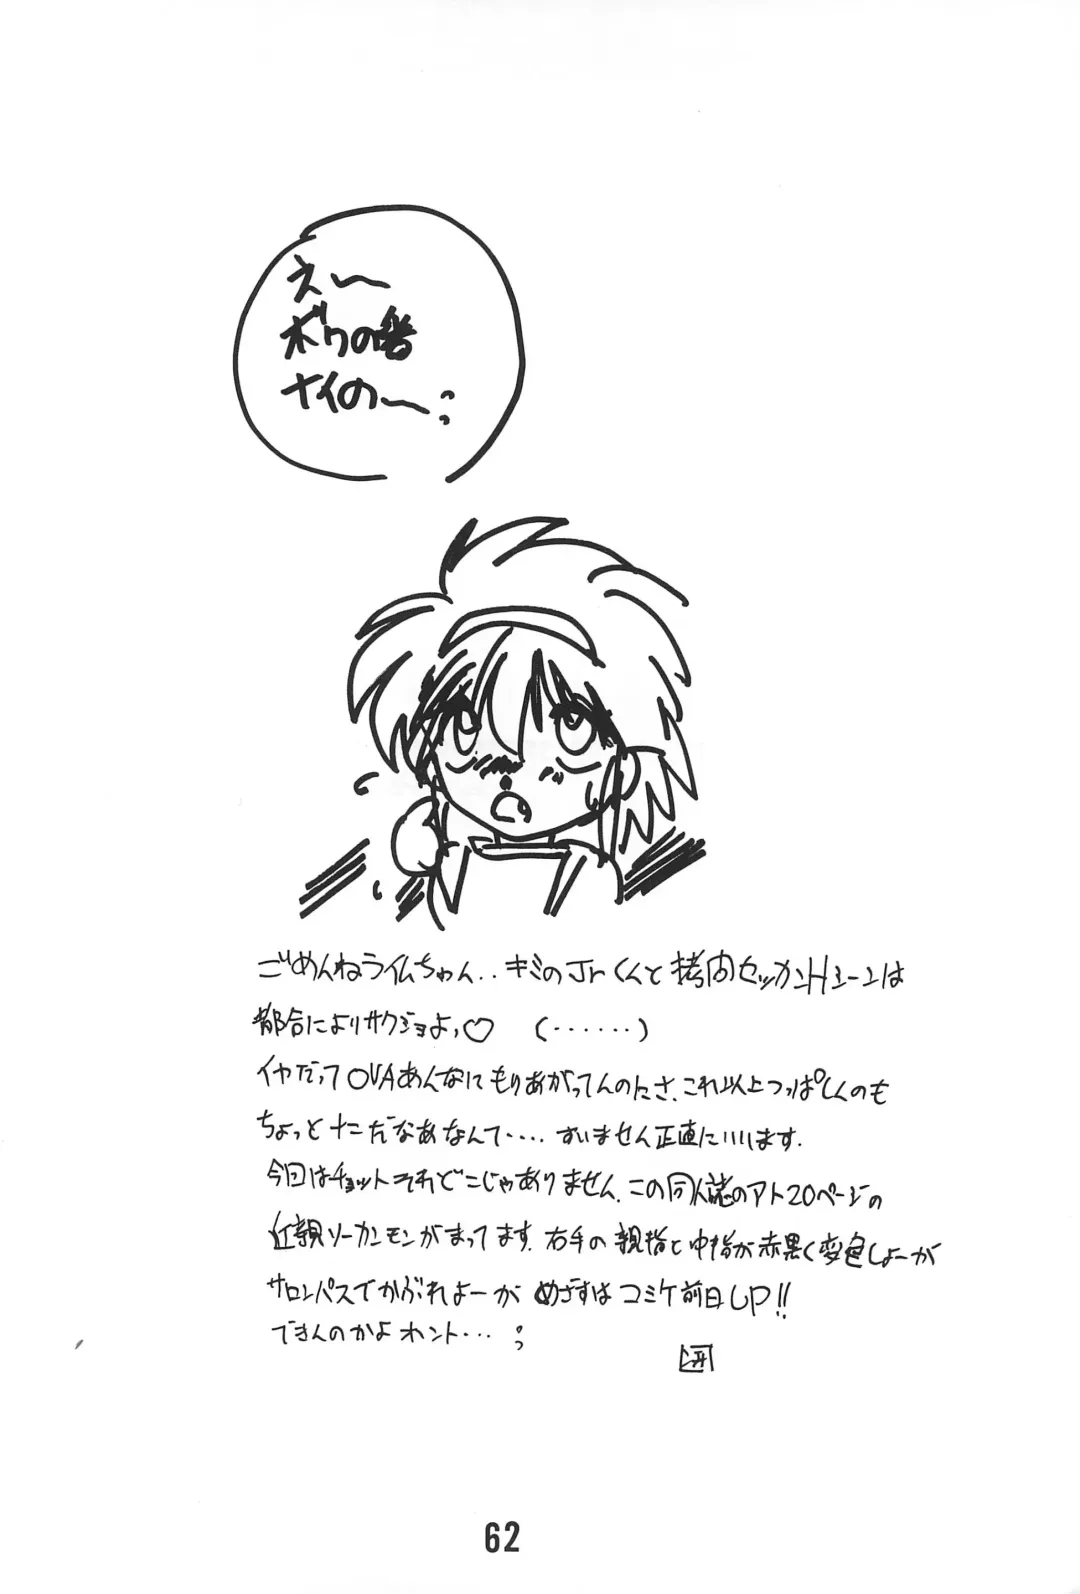 え〜
ボクの
ナイの〜
ごめんねライムちゃん‥キミのJrくんと拷内セッカンHシーンは
都合によりサクジョよっ♡ (‥‥‥)
イヤだってOVAあんなにもりあがってんのにさ、これ以上つっぱしんのも
ちょっとナニだなあなんて‥‥すいません正直にいいます.
今回はチョットそれどこじゃありません.この同人誌のアト20ページの
近親ソーカンモンがまってます.右手の親指と中指が赤黒く変色しよーが
サロンパスでかぶれよーがめざすはコミケ前日UP!!
できんのかよホント‥‥
62